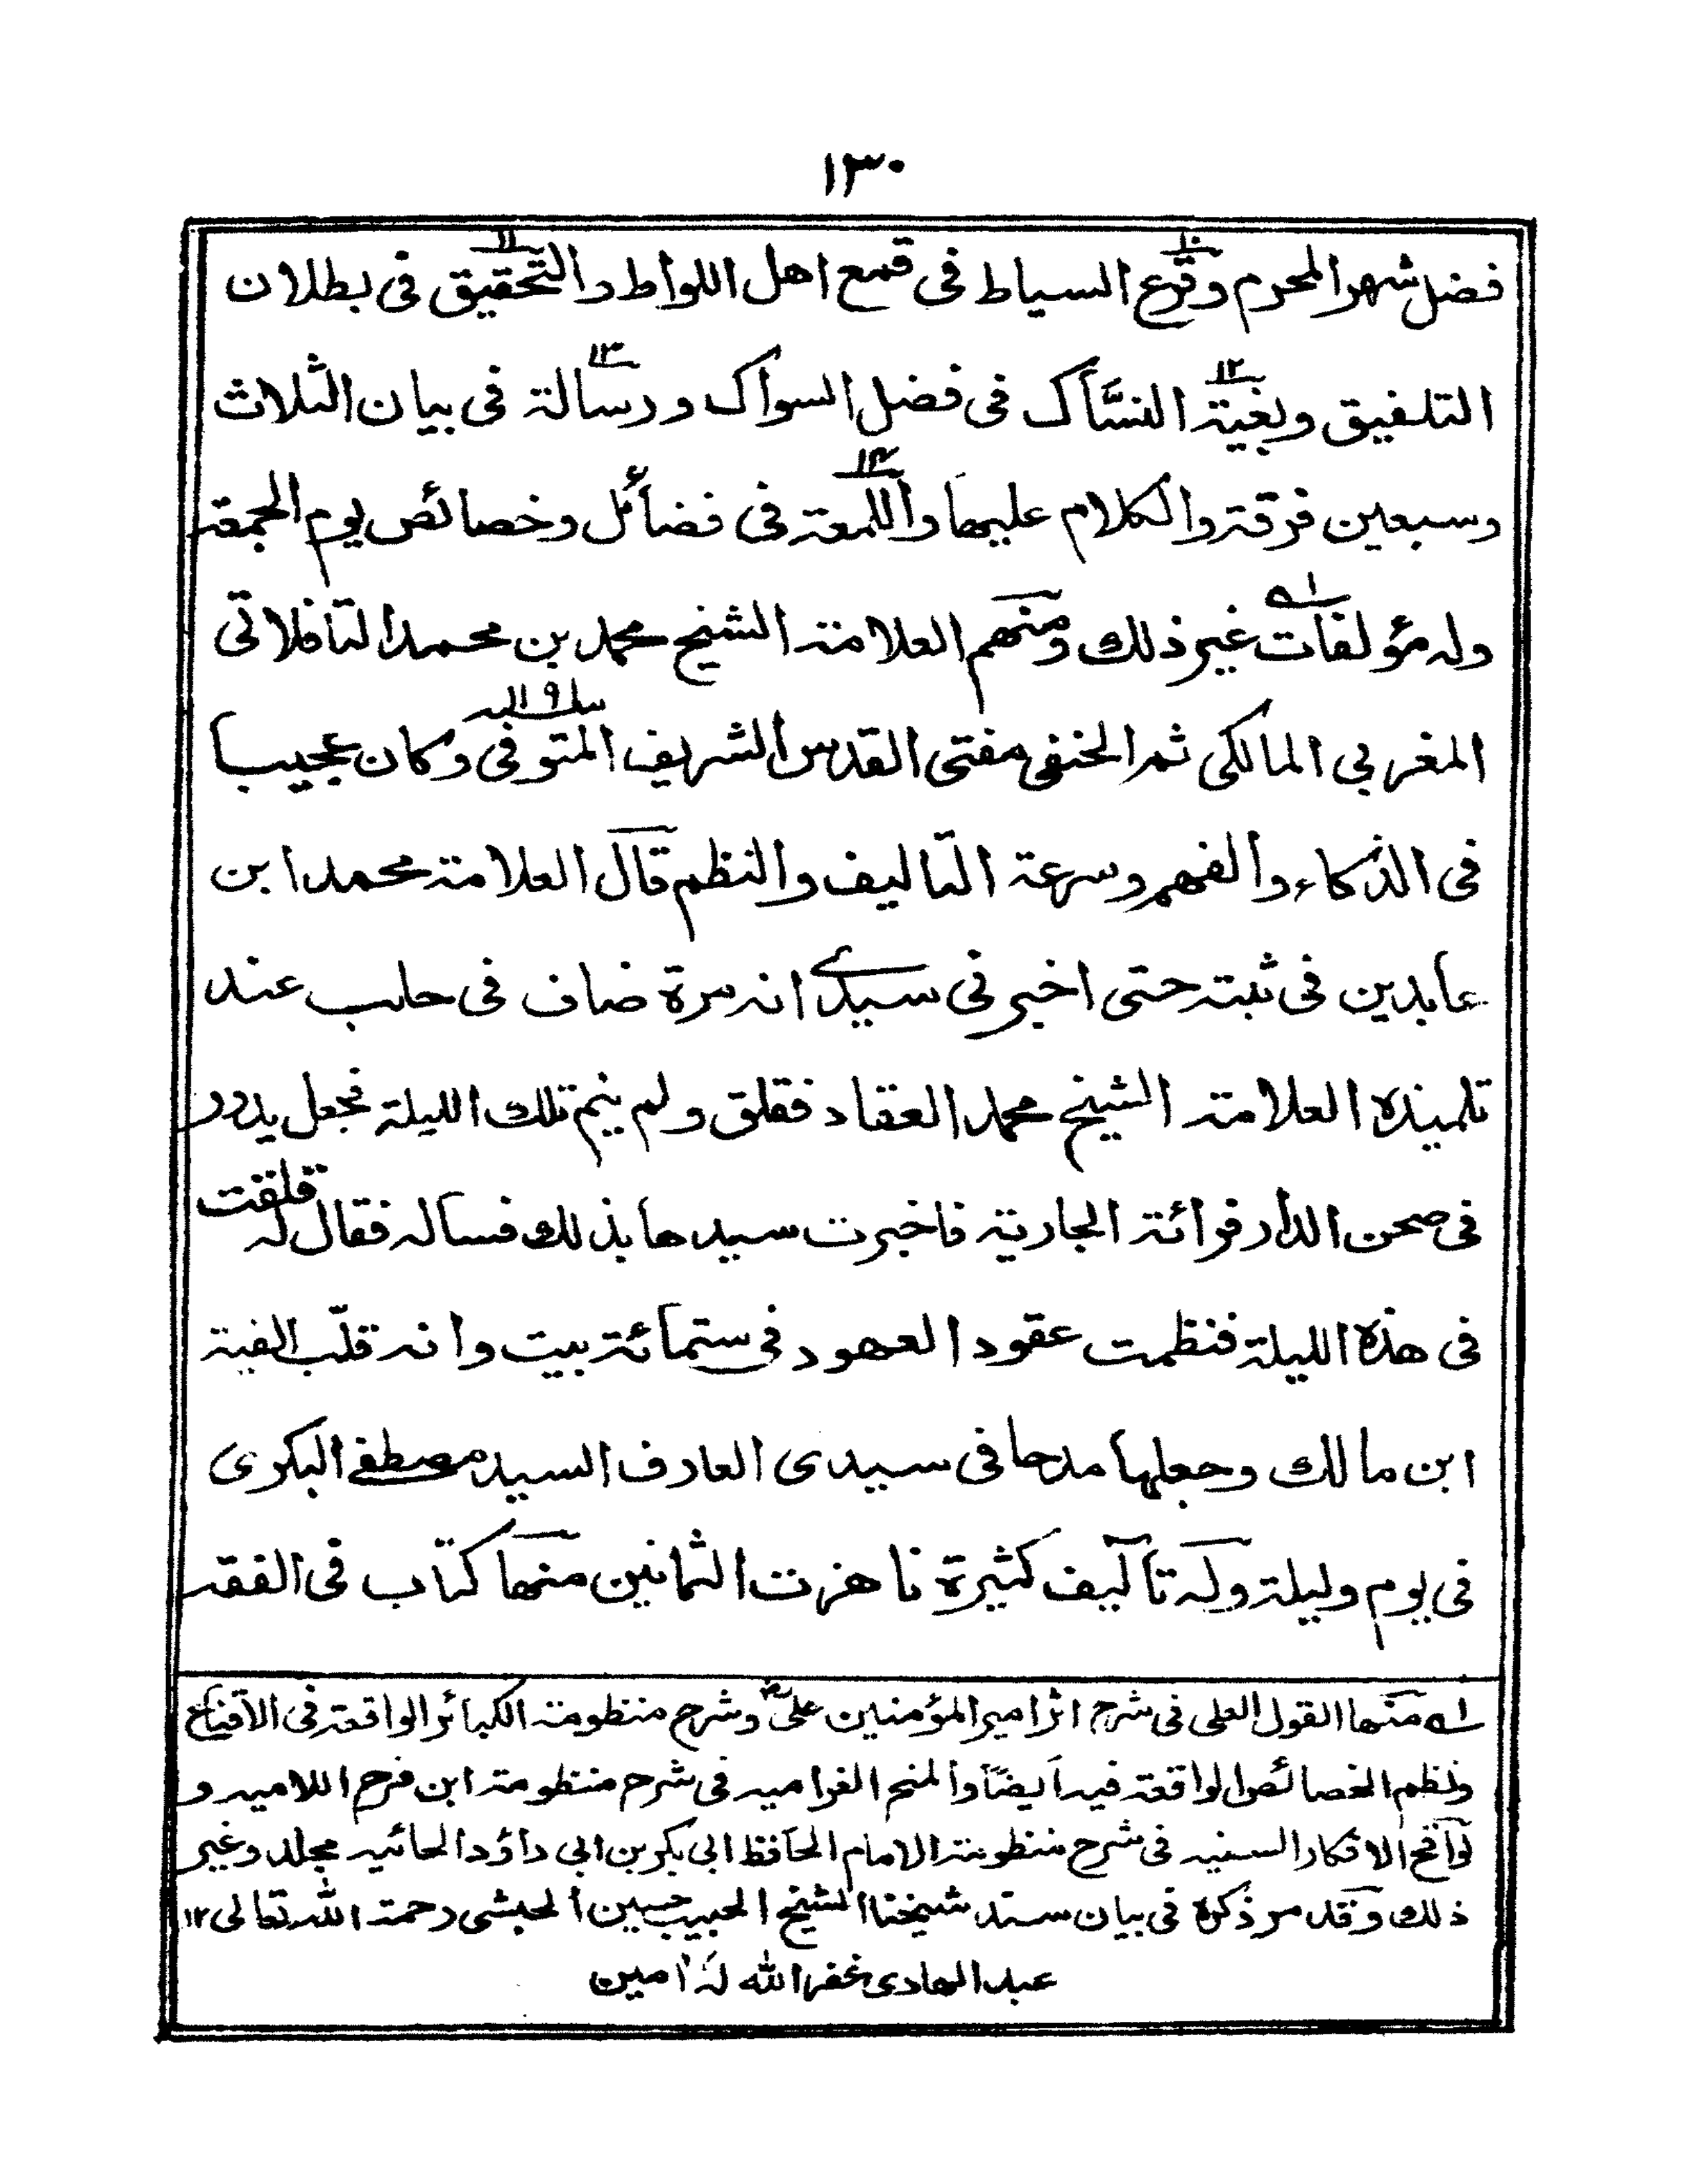 ١٣٠
فضل شهر المحرم وقرع السياط فى قمع اهل اللواط والتحقيق فى بطلان
التلفيق وبغية النسَّاك فى فضل السواك ورسالة فى بيان الثلاث
وسبعين فرقة والكلام عليها واللمعة فى فضائل وخصائص يوم الجمعة
وله مؤلفات غير ذلك ومنهم العلامة الشيخ محمد بن محمد التافلاتى
المغربي المالكى ثم الحنفى مفتى القدس الشريف المتوفى وكان عجيبا
فى الذكاء والفهم وسرعة التاليف والنظم قال العلامة محمد ابن
عابدين فى ثبته حتى اخبرنى سيدے انه مرة ضاف فى حلب عند
تلميذه العلامة الشيخ محمد العقاد فقلق ولم ينم تلك الليلة فجعل يدور
فى صحن الدار فرائة الجارية فاخبرت سيدها بذلك فساله فقال له قلقت
فى هذه الليلة فنظمت عقود العهود فى ستمائة بيت وانه قلّب الفية
ابن مالك وجعلها مدحا فى سيدى العارف السيد مصطفے البكرى
فى يوم وليلة وله تآليف كثيرة ناهزت الثمانين منها كتاب فى الفقه
اه منها القول العلى فى شرح اثر امير المؤمنين على وشرح منظومة الكبائر الواقعة فى الاقناع
ونظم الخصائص الواقعة فيه ايضًا والمنح الغراميه فى شرح منظومة ابن فرح اللاميه و
لواقح الافكار السنيه فى شرح منظومة الامام الحافظ ابى بكر بن ابى داؤد الحائيه مجلد وغير
ذلك وقد مر ذكره فى بيان سند شيخنا الشيخ الحبيب حسين الحبشى رحمة الله تعالى ١٢
عبد الهادى غفر الله له اٰمين